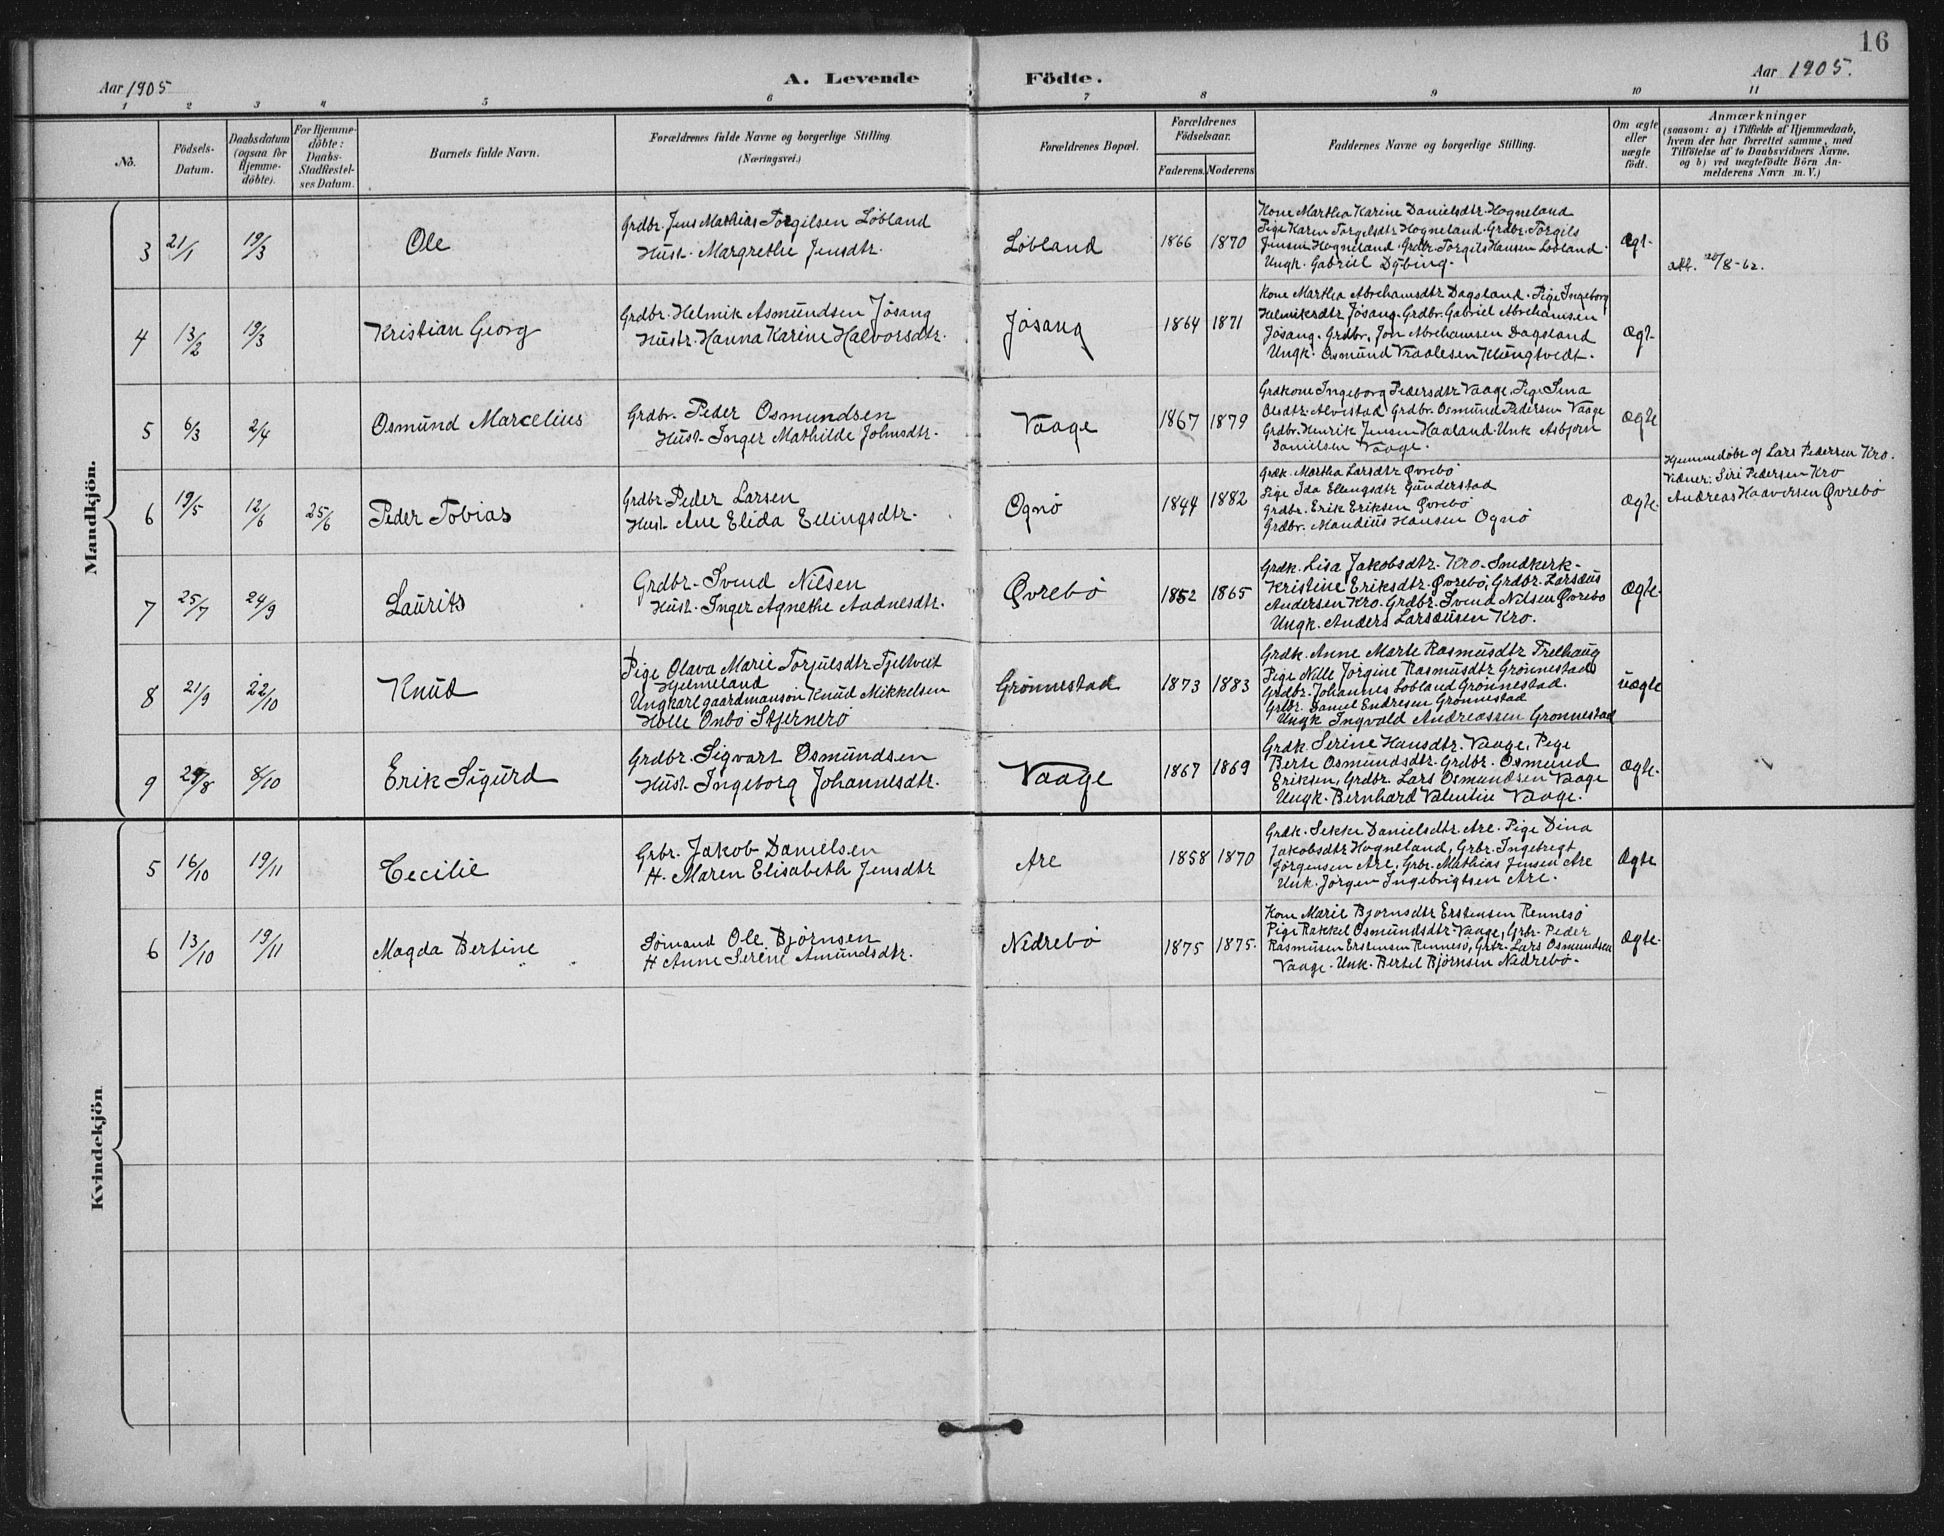 16
Aar 1905
A. Levende Födte.
Aar 1905.
1 2 3 4 5 6 7 8 9 10 11
No.
Födsels-
Datum.
Daabsdatum
(ogsaa for
Hjemme-
döbte).
For Hjemme-
döbte:
Daabs-
Stadfestel-
ses Datum.
Barnets fulde Navn.
Forældrenes fulde Navne og borgerlige Stilling
(Næringsvei.)
Forældrenes Bopæl.
Forældrenes
Födselsaar.
Faderens. Moderens
Faddernes Navne og borgerlige Stilling.
Om ægte
eller
uægte
födt.
Anmærkninger
(saasom: a) i Tilfælde af Hjemmedaab,
hvem der har forrettet samme, med
Tilföielse af to Daabsvidners Navne.
og b) ved uægtefödte Börn An-
melderens Navn m. V.)
Mandkjön.
3 21/1 19/3
Ole
Grdbr. Jens Mathias Torgilsen Løbland
Hust. Margrethe Jensdtr.
Løbland
1866 1870
Kone Martha Karine Danielsdtr. Hogneland
Pige Karen Torgilsdtr Hogneland. Grdbr. Torgils
Jensen Hogneland. Grdbr. Torgils Hansen Løbland.
Ungk. Gabriel Dybing.
Ægt.
att. 20/8-62.
4 13/2 19/3
Kristian Georg
Grdbr. Helmik Asmundsen Jøsang
Hustr. Hanna Karine Halvorsdtr.
Jøsang
1864 1871
Kone Martha Abrehamsdtr Dagsland. Pige Ingeborg
Helmiksdtr Jøsang. Grdbr. Gabriel Abrehamsen
Jøsang. Grdbr. Jon Abrehamsen Dagsland
Ungk. Osmund Vraalesen Klungtvedt.
Ægt.
5 6/3 2/4
Osmund Marcelius
Grdbr. Peder Osmundsen
Hust. Inger Mathilde Johnsdtr.
Vaage
1867 1879
Grdkone Ingeborg Pedersdtr Vaage, Pige Sina
Olsdtr. Alvestad Grdbr. Osmund Pedersen Vaage
Grdbr. Henrik Jensen Haaland. Unk Asbjørn
Danielsen Vaage.
Ægte
6 19/5 12/6 25/6
Peder Tobias
Grdbr. Peder Larsen
Hust. Ane Elida Ellingsdtr.
Ognø
1844 1882
Grdk. Martha Larsdtr Øvrebø
Pige Ida Ellingsdtr Gunderstad
Grdbr. Erik Eriksen Øvrebø
Grdbr. Mandius Hansen Ognø
Ægte.
Hjemmedøbt af Lars Pedersen Kro.
Vidner: Siri Pedersen Kro
Andreas Haaversen Øvrebø
7 25/7 24/9
Laurits
Grdbr. Svend Nilsen
Hust. Inger Agnethe Aadnesdtr.
Øvrebø
1852 1865
Grdk. Lisa Jakobsdtr. Kro. Smedkerk-
Kristine Eriksdtr. Øvrebø, Grdbr. Larsæus
Andersen Kro. Grdbr. Svend Nilsen Øvrebø
Ungk. Anders Larsæusen Kro.
Ægte.
8 21/9 22/10
Knud
Pige Olava Marie Torjulsdtr Tjeltveit
Hjelmeland
Ungkarl gaardmansøn Knud Mikkelsen
Holle Onbø Stjernerø
Grønnestad
1873 1883
Grdk. Anne Marte Rasmusdtr Frelhaug
Pige Nille Jørgine Rasmusdtr Grønnestad
Grdbr. Johannes Løbland Grønnestad.
Grbr. Daniel Endresen Grønnestad
Ungk Ingvald Andreassen Grønnestad
uægte
9 29/8 8/10
Erik Sigurd
Grdbr. Sigvart Osmundsen
Hust. Ingeborg Johannesdtr.
Vaage
1867 1869
Grdk. Serine Hansdtr. Vaage, Pige
Berte Osmundsdtr. Grdbr. Osmund
Eriksen, Grdbr. Lars Osmundsen Vaage
Ungk. Bernhard Valentin Vaage.
Ægte.
Kvindekjön
5 16/10 19/11
Cecilie
Grbr. Jakob Danielsen
H. Maren Elisabeth Jensdtr
Are
1858 1870
Grdk. Sekke Danielsdtr. Are. Pige Dina
Jakobsdtr Hogneland, Grbr. Ingebregt
Jørgensen Are, Grbr. Mathias Jensen Are
Unk. Jørgen Ingebrigtsen Are.
Ægte
6 13/10 19/11
Magda Bertine
Sømand Ole Bjørnsen
H Anne Serine Amundsdtr.
Nedrebø
1875 1875.
Kone Marie Bjørnsdtr Erstensen Rennesø
Pige Rakkel Osmundsdtr. Vaage, Grbr. Peder
Rasmusen Erstensen Rennesø, Grbr. Lars Osmundsen
Vaage. Unk. Bertel Bjørnsen Nedrebø.
Ægte.